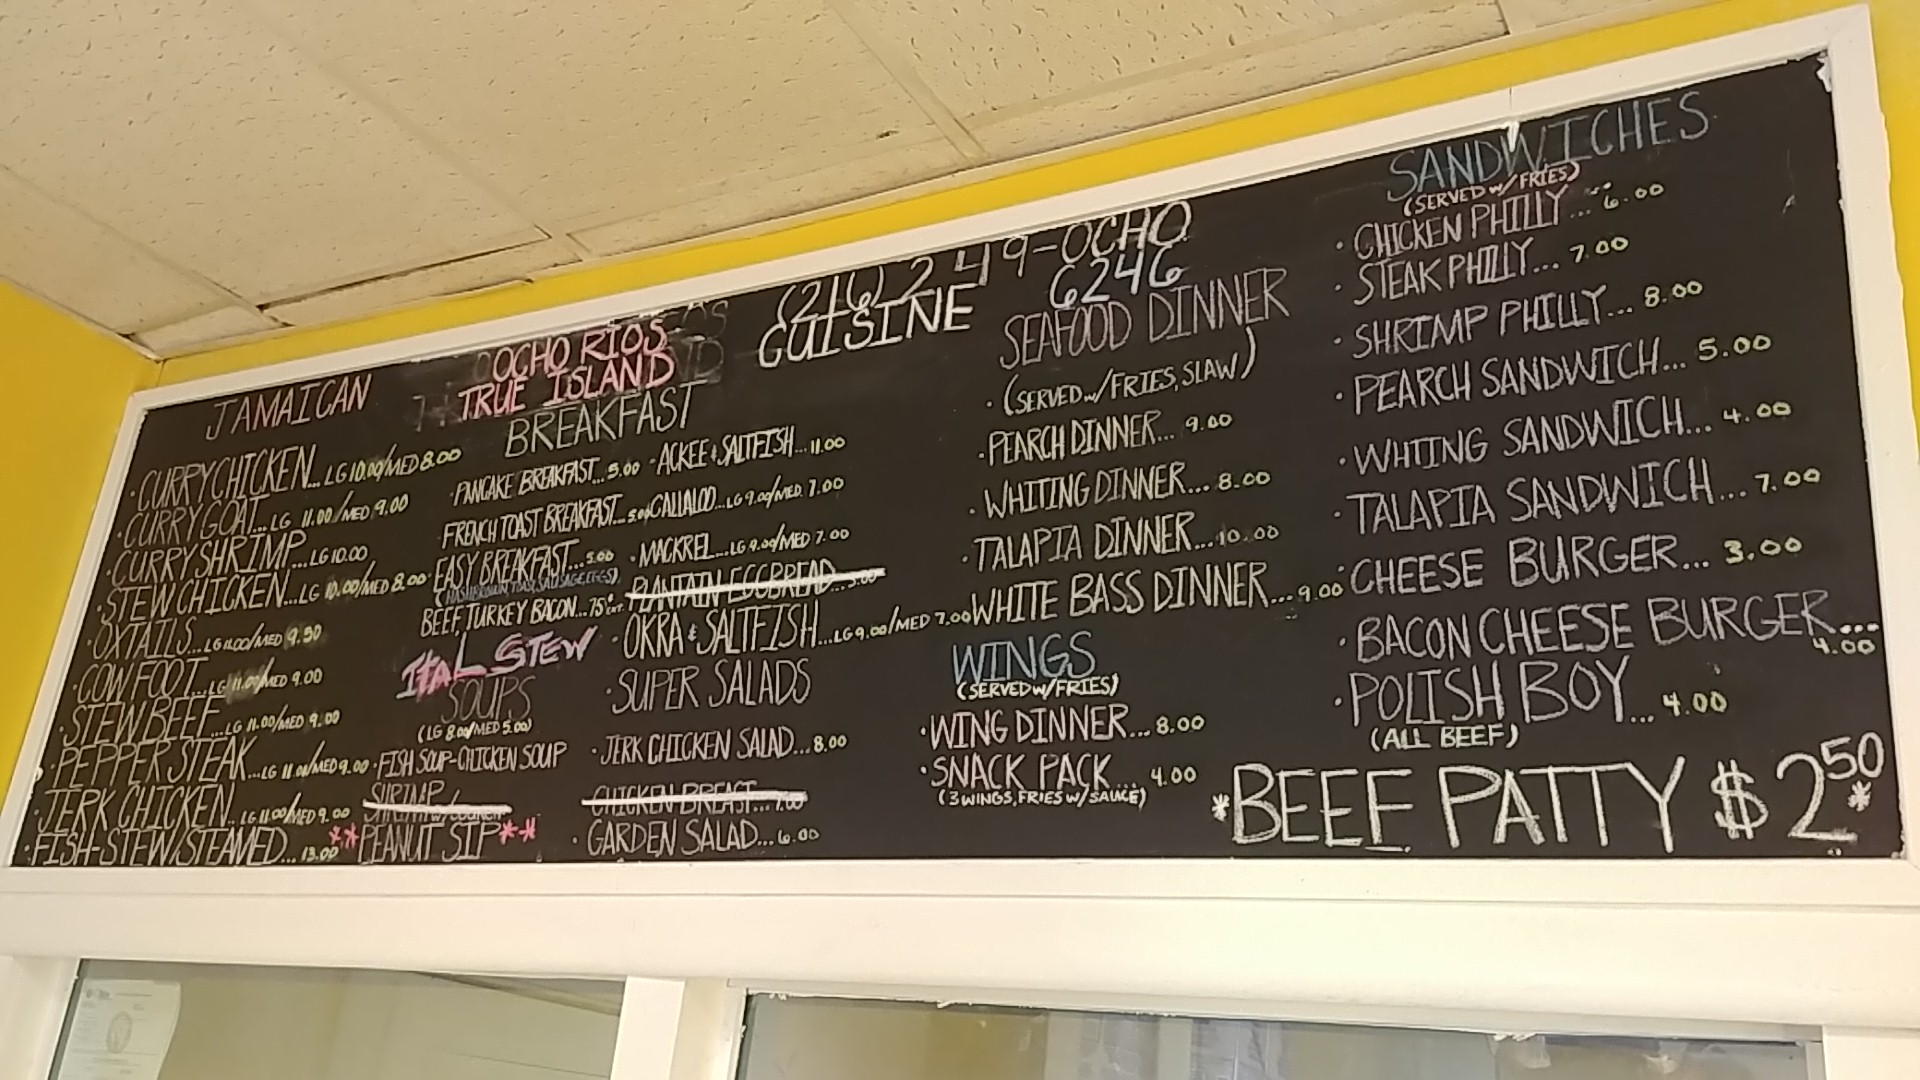 (216) 249-OCHO
6246
OCHO RIOS
TRUE ISLAND
CUISINE
JAMAICAN
· CURRY CHICKEN... LG 10.00/MED 8.00
· CURRY GOAT... LG 11.00/MED 9.00
· CURRY SHRIMP... LG 10.00
· STEW CHICKEN... LG 10.00/MED 8.00
· OXTAILS... LG 11.00/MED 9.50
· COW FOOT... LG 11.00/MED 9.00
· STEW BEEF... LG 11.00/MED 9.00
· PEPPER STEAK... LG 11.00/MED 9.00
· JERK CHICKEN.. LG 11.00/MED 9.00
· FISH-STEW/STEAMED... 13.00
BREAKFAST
· PANCAKE BREAKFAST... 5.00
FRENCH TOAST BREAKFAST... 5.00
EASY BREAKFAST... 5.00
(HASHBROWN, TOAST, SAUSAGE, EGGS)
BEEF, TURKEY BACON... 75¢ EXT.
· ACKEE & SALTFISH... 11.00
CALLALOO... LG 9.00/MED. 7.00
· MACKREL... LG 9.00/MED 7.00
· PLANTAIN EGGBREAD... 5.00
· OKRA & SALTFISH... LG 9.00/MED 7.00
ITAL STEW
SOUPS
(LG 8.00/MED 5.00)
· FISH SOUP-CHICKEN SOUP
SHRIMP
**PEANUT SIP**
· SUPER SALADS
· JERK CHICKEN SALAD... 8.00
· CHICKEN BREAST... 7.00
· GARDEN SALAD... 6.00
SEAFOOD DINNER
· (SERVED w/FRIES, SLAW)
· PEARCH DINNER... 9.00
· WHITING DINNER... 8.00
· TALAPIA DINNER... 10.00
· WHITE BASS DINNER... 9.00
WINGS
(SERVED w/FRIES)
· WING DINNER... 8.00
· SNACK PACK... 4.00
(3 WINGS, FRIES w/ SAUCE)
SANDWICHES
(SERVED w/ FRIES)
· CHICKEN PHILLY... 6.00
· STEAK PHILLY... 7.00
· SHRIMP PHILLY... 8.00
· PEARCH SANDWICH... 5.00
· WHTING SANDWICH... 4.00
· TALAPIA SANDWICH... 7.00
· CHEESE BURGER... 3.00
· BACON CHEESE BURGER...
4.00
· POLISH BOY... 4.00
(ALL BEEF)
*BEEF PATTY $2.50*